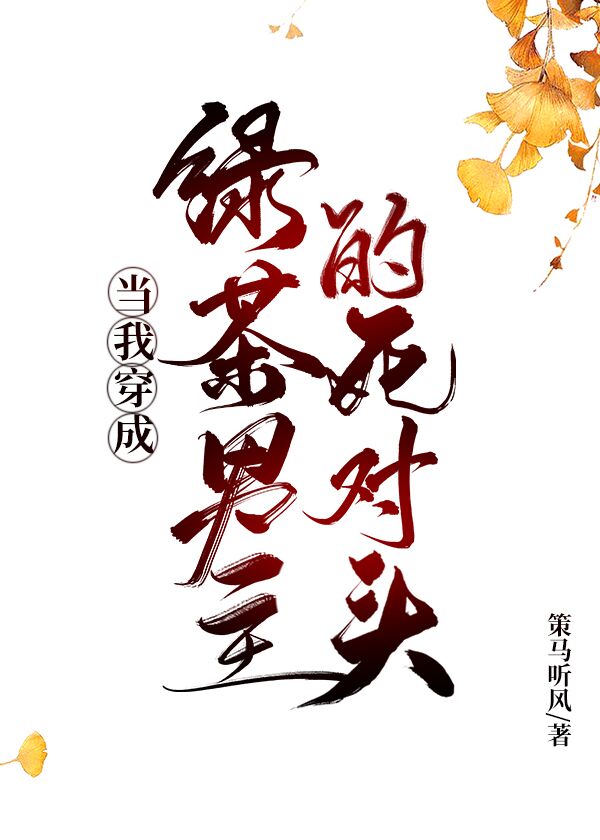 当我穿成
绿茶男主
的死对头
策马听风/著